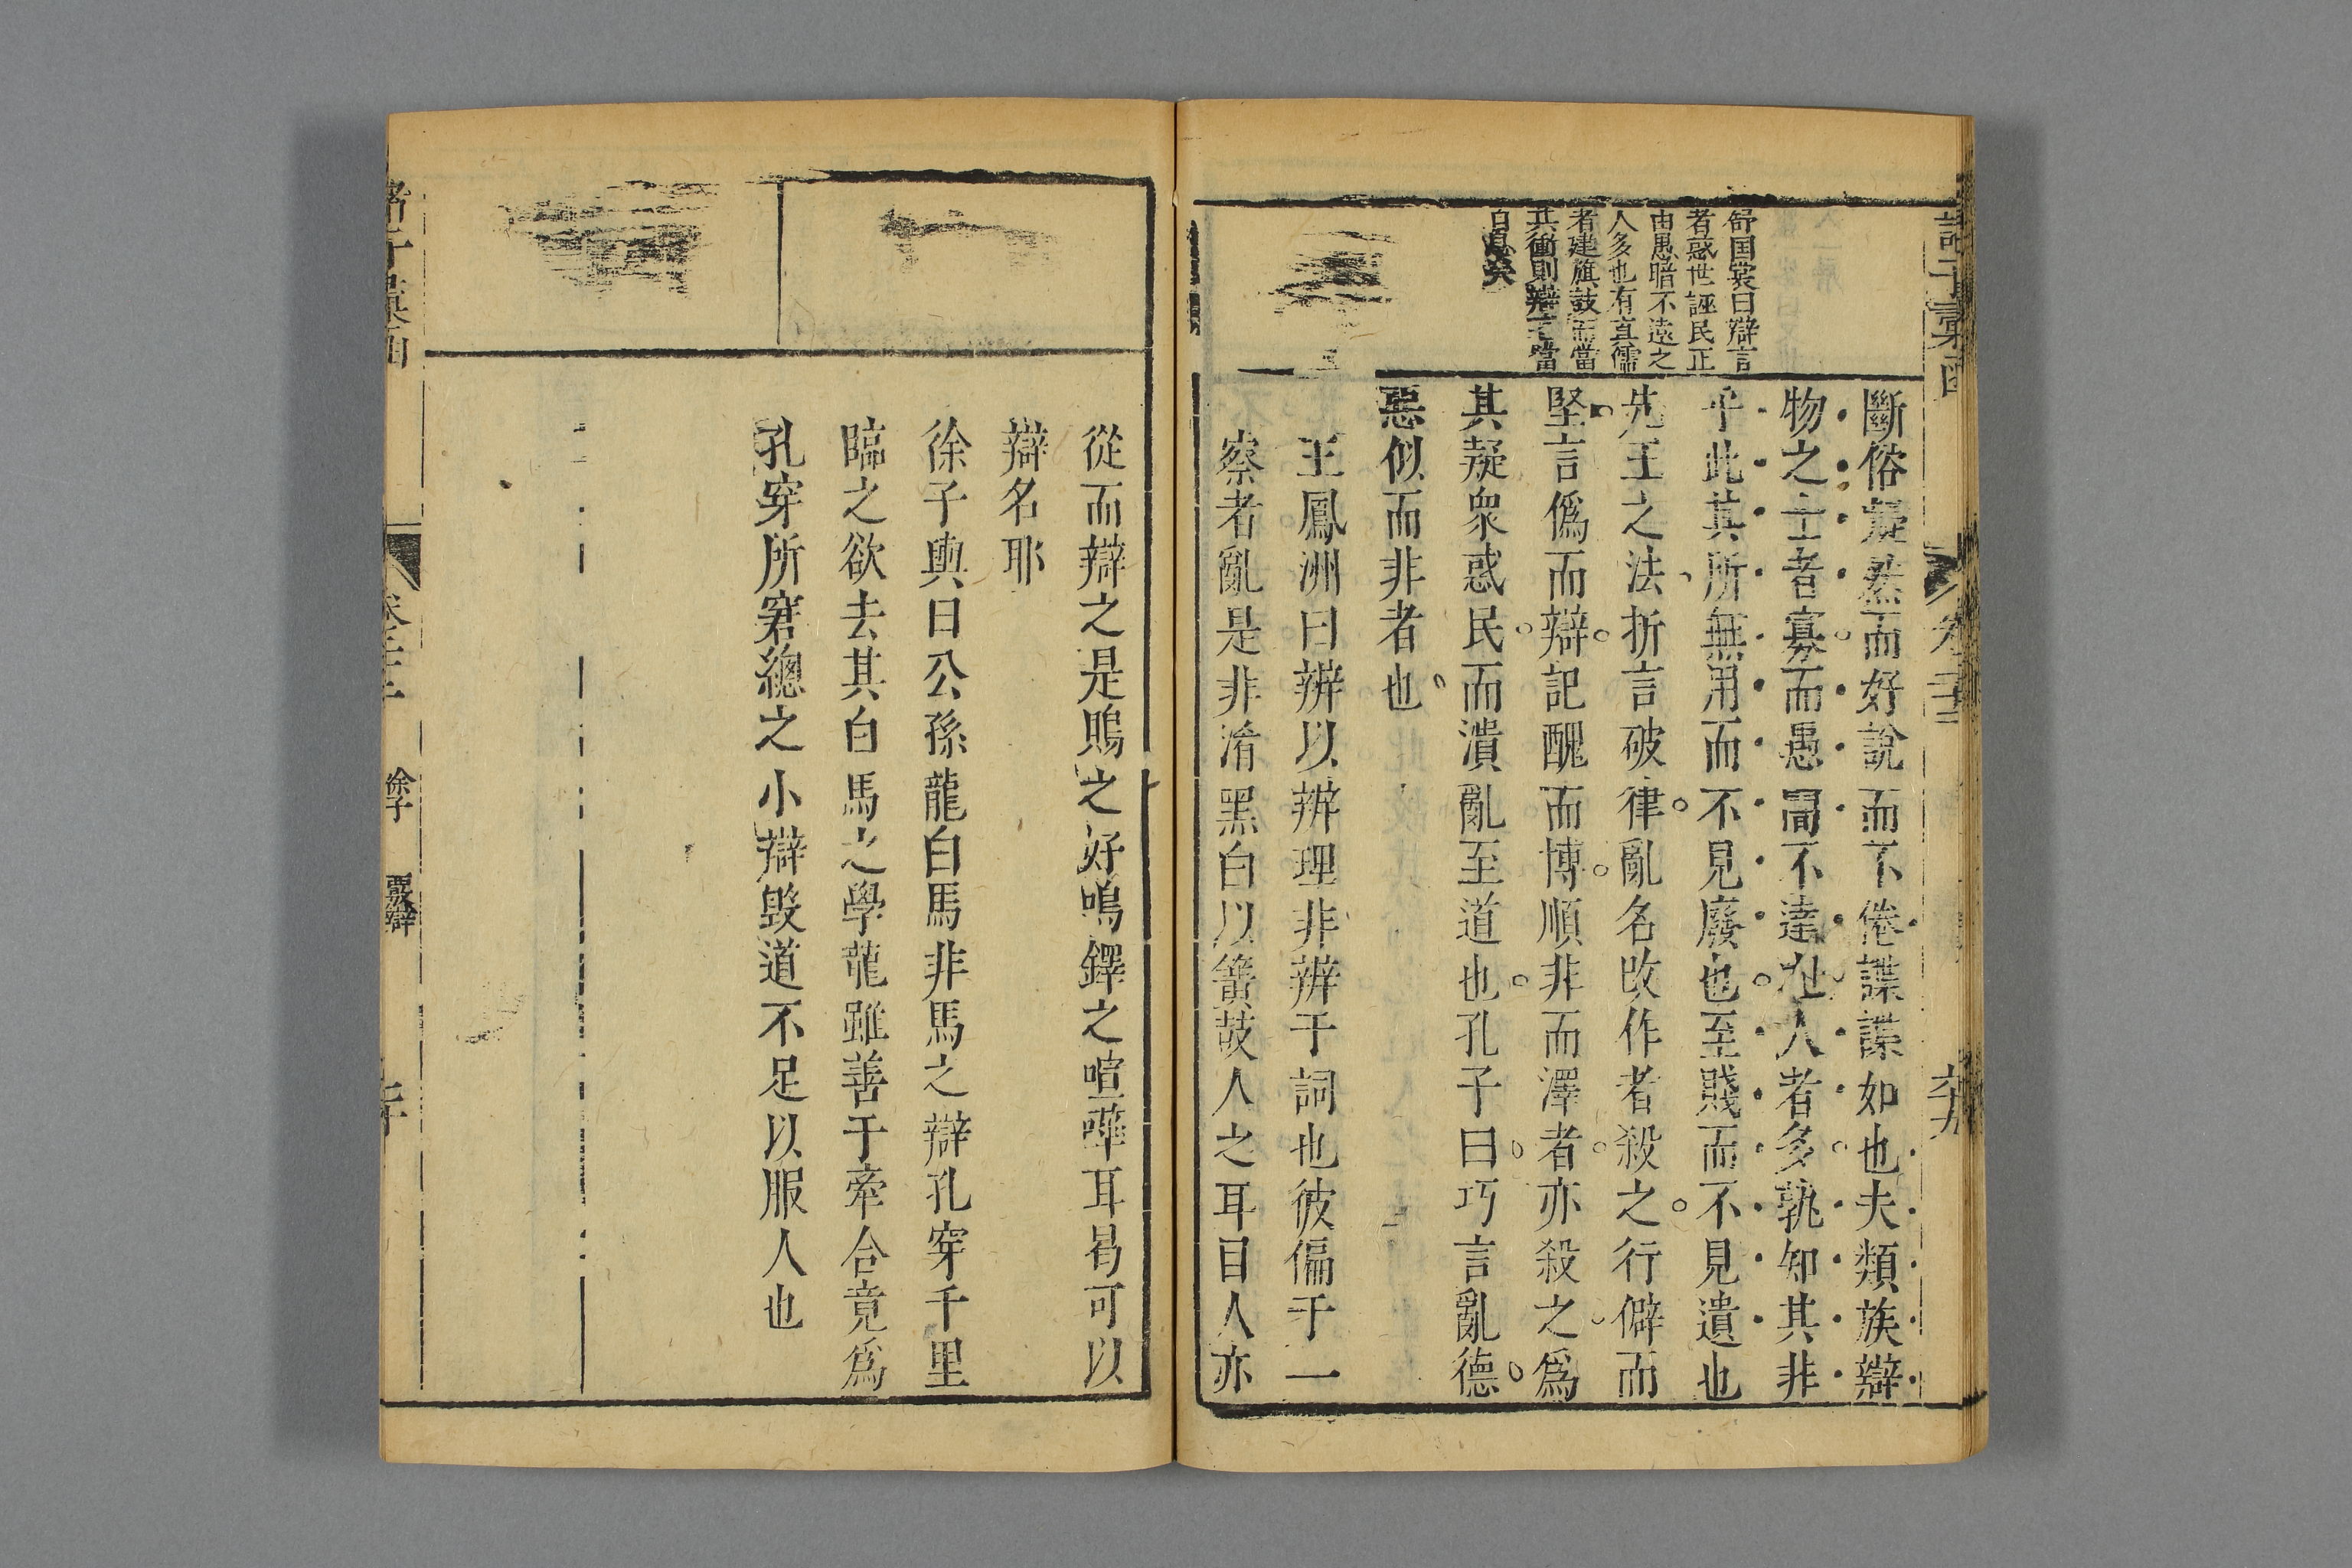 諸子彙函
卷三十三
六十九
舒国裳曰辯言
者惑世誣民正
由愚暗不遠之
人多也有真儒
者建旗鼓而當
其衝則辯不當
自息矣
斷俗疑然而好說而不倦諜諜如也夫類族辯
物之士者寡而愚闇不達之人者多孰知其非
乎此其所無用而不見廢也至賤而不見遺也
先王之法折言破律亂名改作者殺之行僻而
堅言僞而辯記醜而博順非而澤者亦殺之爲
其疑衆惑民而潰亂至道也孔子曰巧言亂德
惡似而非者也
王鳳洲曰辨以辨理非辨于詞也彼偏于一
察者亂是非淆黑白以簧鼓人之耳目人亦
從而辯之是鵙之好鳴鐸之喧嘩耳曷可以
辯名耶
徐子輿曰公孫龍白馬非馬之辯孔穿千里
臨之欲去其白馬之學龍雖善于牽合竟爲
孔穿所窘總之小辯毀道不足以服人也
諸子彙函
卷三十三
徐子
覈辯
七十